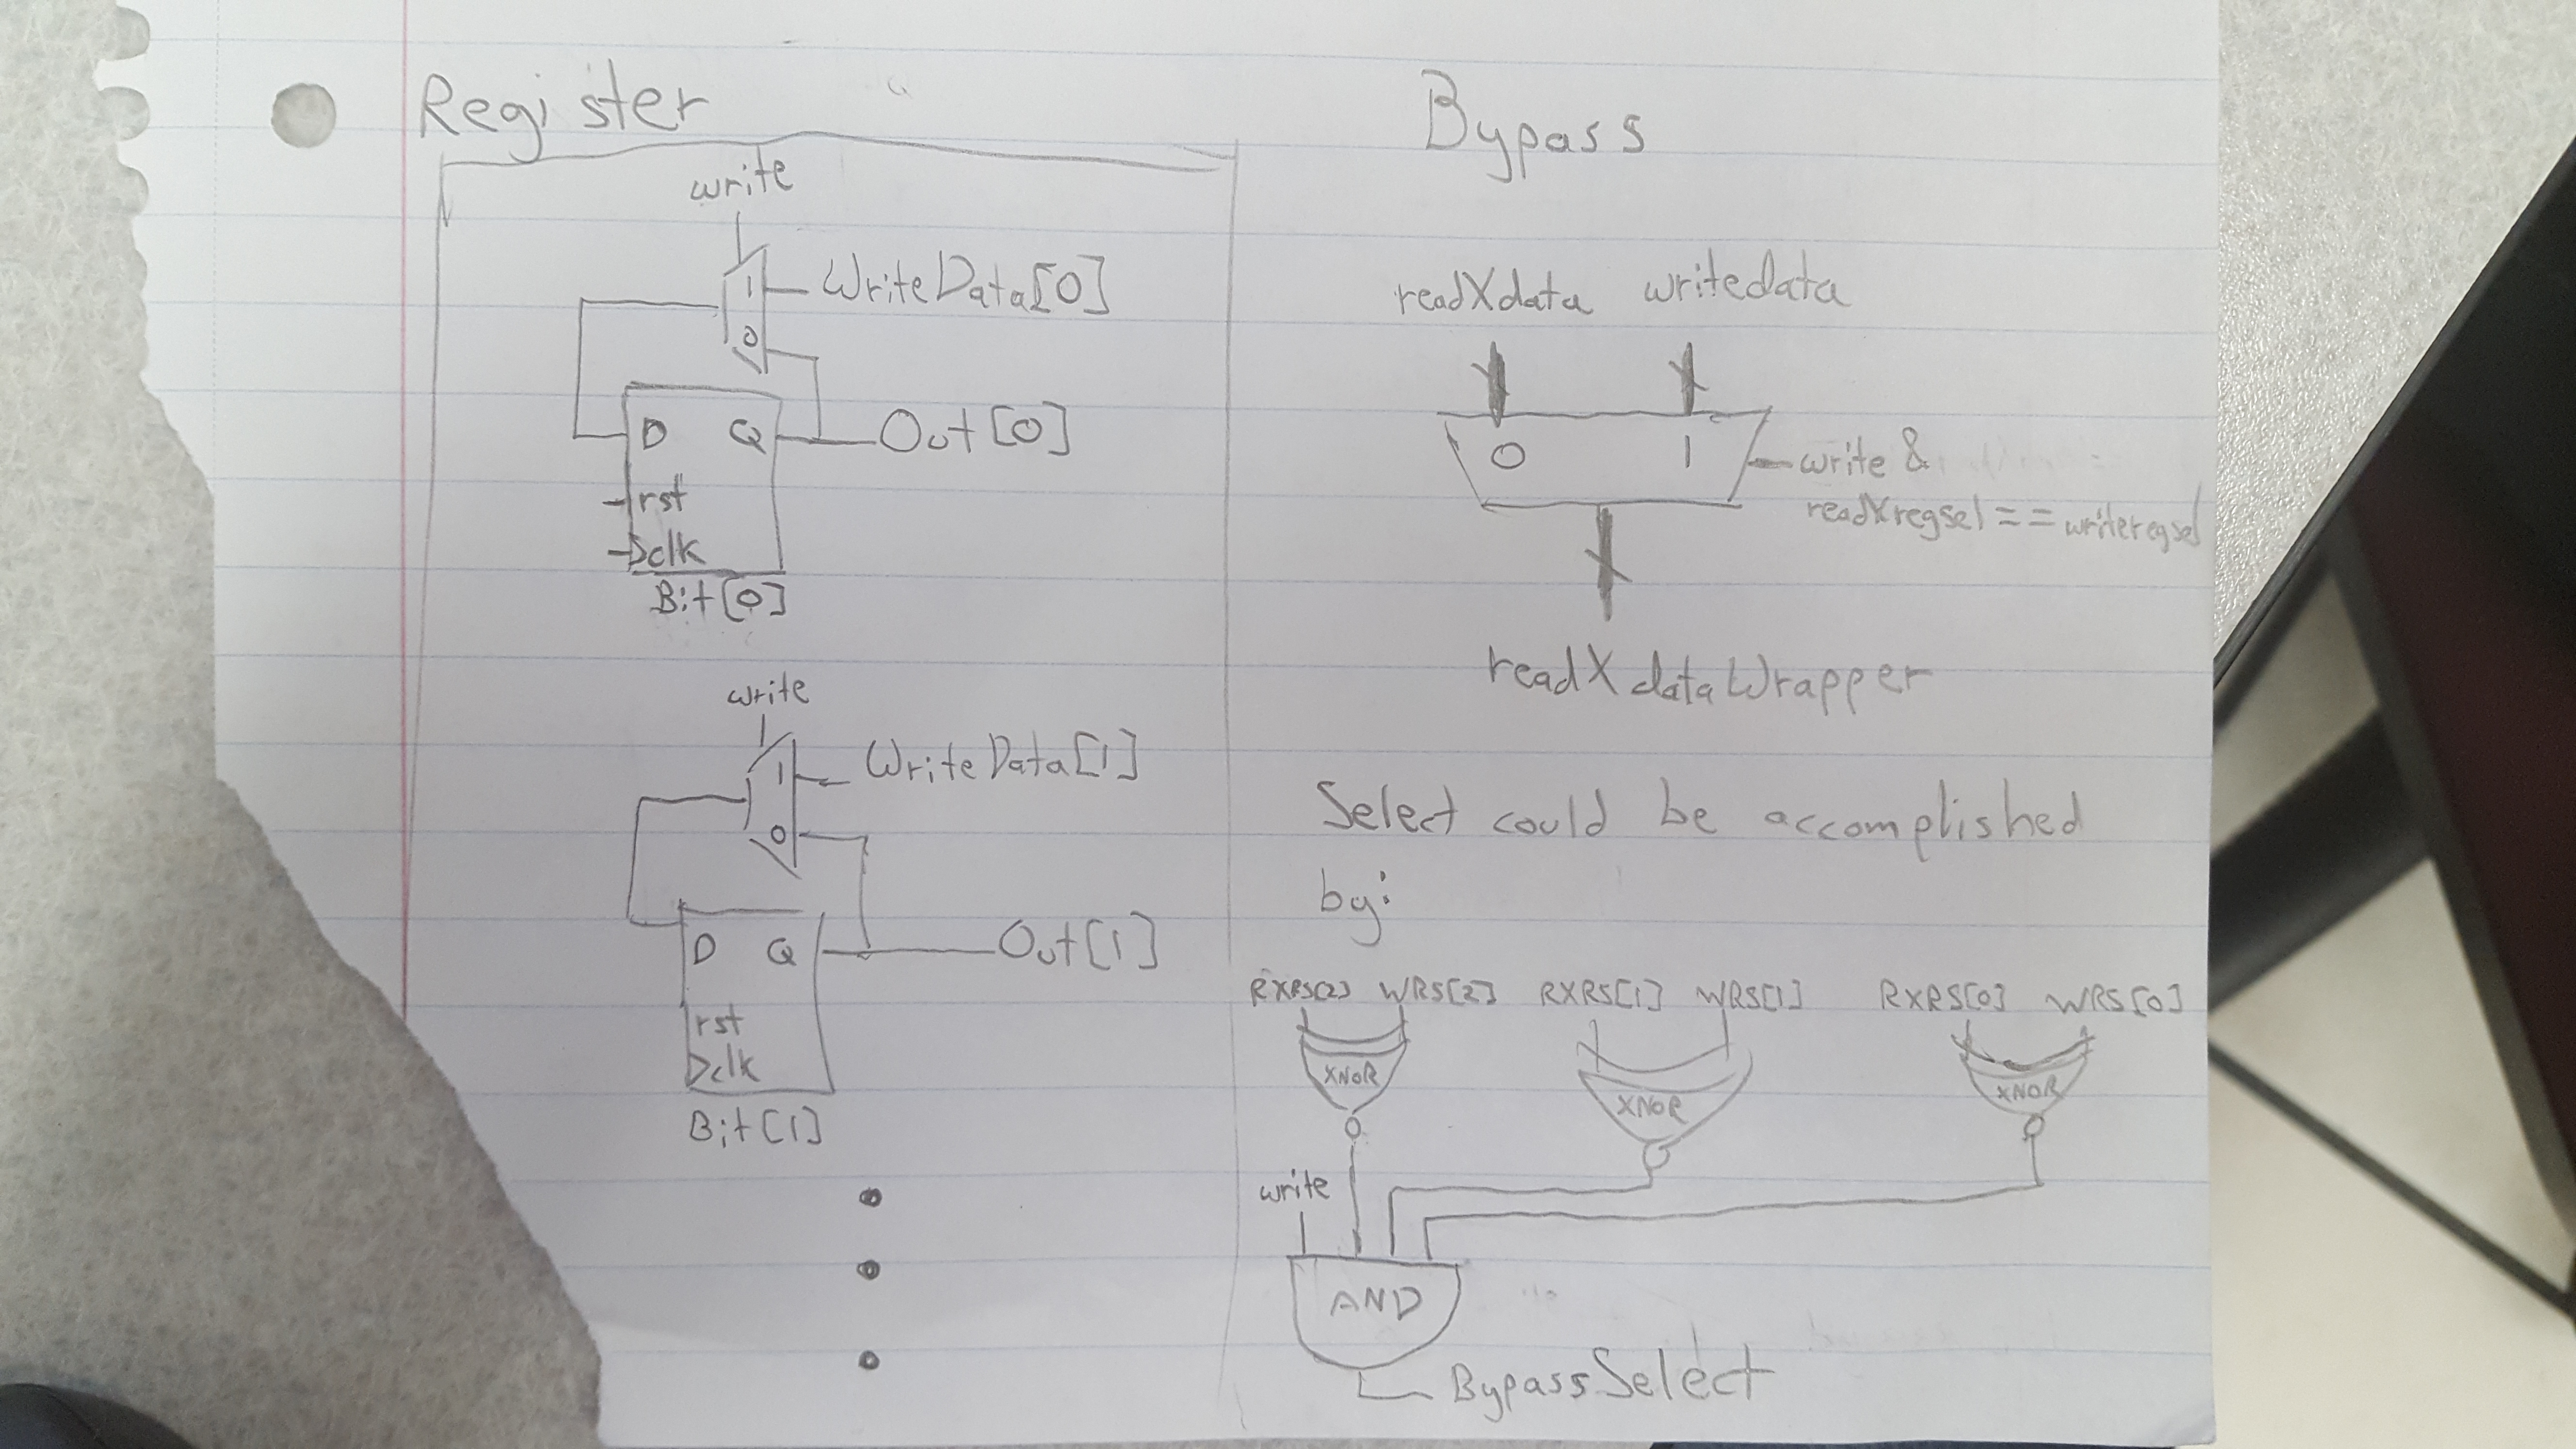 Register
write
1
WriteData[0]
0
D Q
Out[0]
rst
clk
Bit[0]
write
1
WriteData[1]
0
D Q
Out[1]
rst
clk
Bit[1]
Bypass
readXdata writedata
0 1
write &
readXregsel == writeregsel
readXdataWrapper
Select could be accomplished
by:
RXRS[2] WRS[2] RXRS[1] WRS[1] RXRS[0] WRS[0]
XNOR XNOR XNOR
write
AND
BypassSelect